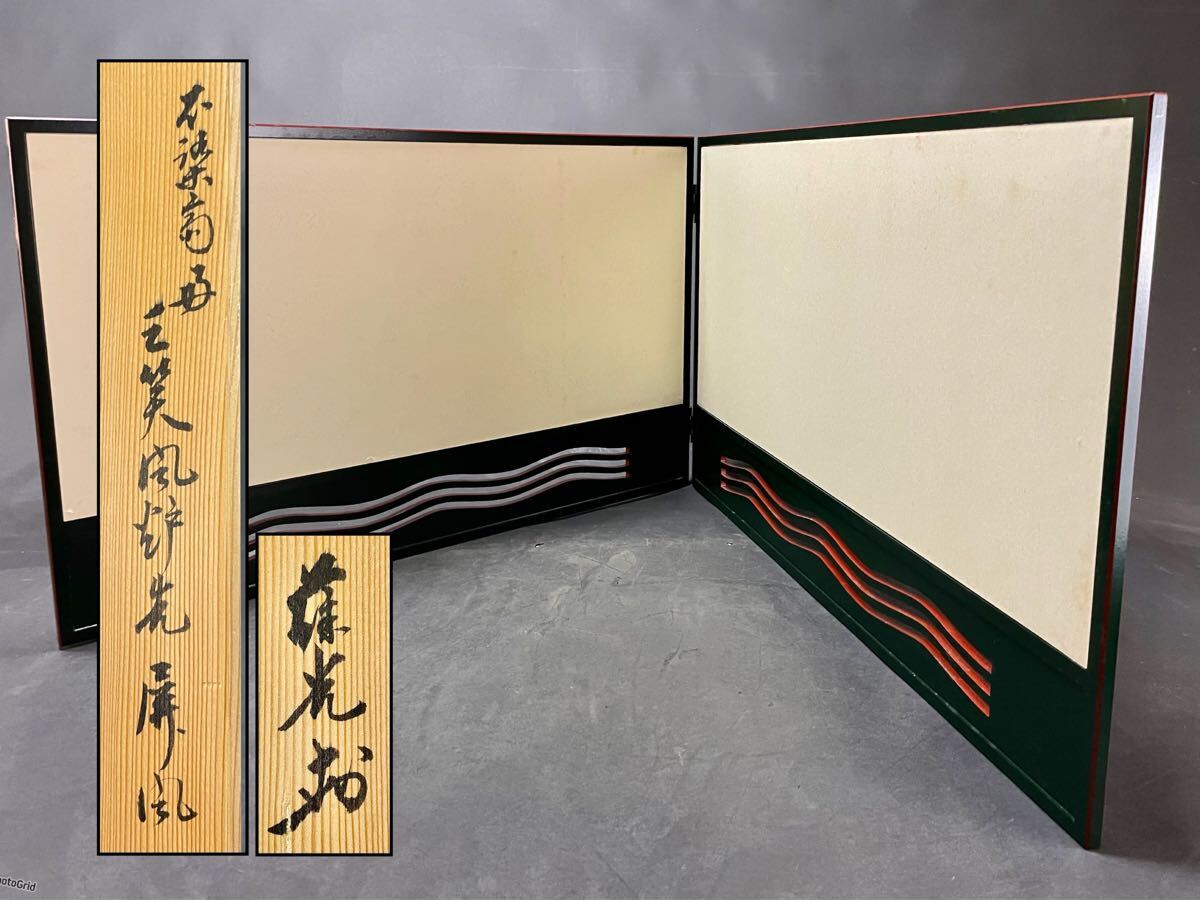 不染斎好
三笑風炉先屏風
葆光
otoGrid